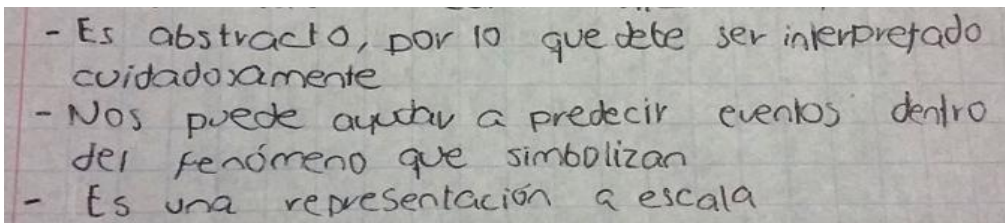 - Es abstracto, por lo que debe ser interpretado
cuidadosamente
- Nos puede ayudar a predecir eventos dentro
del fenómeno que simbolizan
- Es una representación a escala